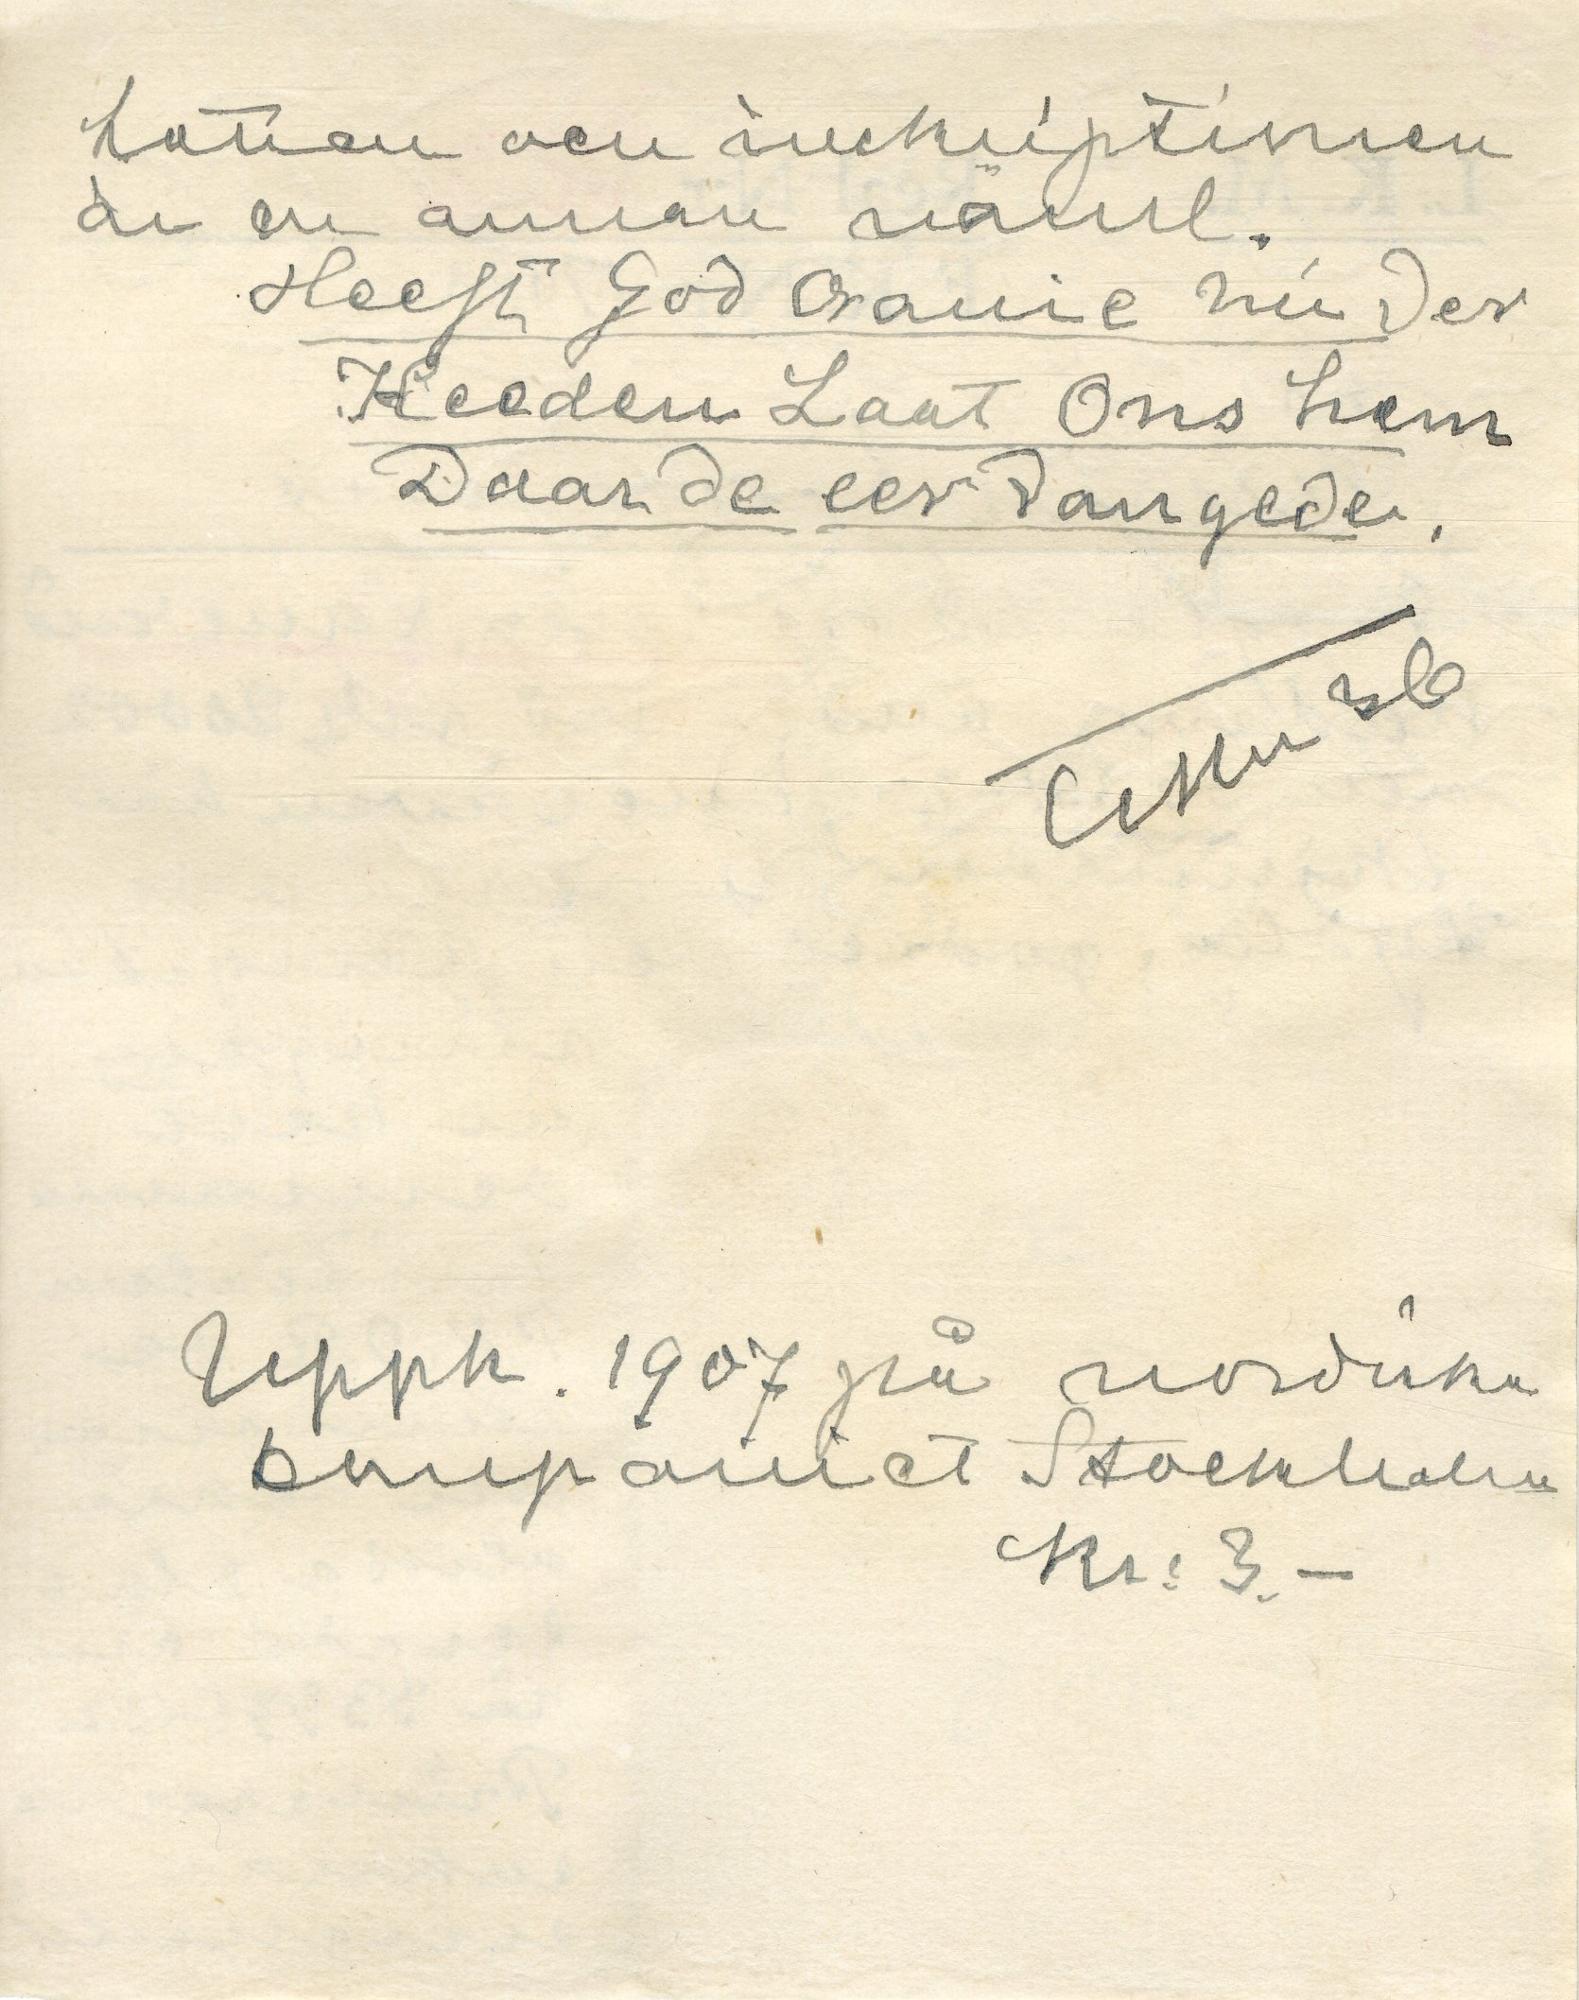 hatten ocn inskriptionen
är en annan näml.
Heeft God Oranie Nú Der
Heeden Laat Ons hem
Daar de eer Van geden.
Uppk. 1907 på nordiska
kompaniet Stockholm
Kr: 3.–